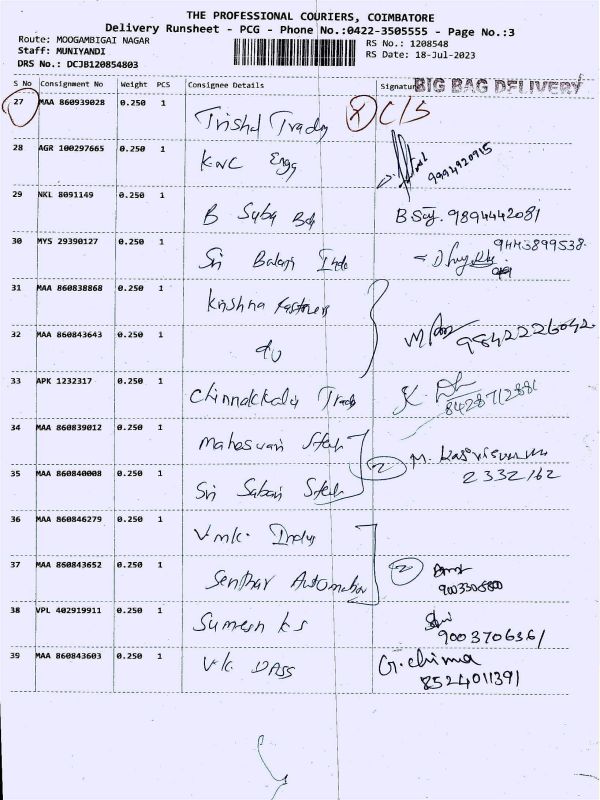 THE PROFESSIONAL COURIERS, COIMBATORE
Delivery Runsheet - PCG - Phone No.:0422-3505555 - Page No.:3
Route: MOOGAMBIGAI NAGAR
Staff: MUNIYANDI
DRS No.: DCJB120854803
RS No.: 1208548
RS Date: 18-Jul-2023
S No Consignment No Weight PCS Consignee Details Signature
BIG BAG DELIVERY
27 MAA 860939028 0.250 1 C/S
28 AGR 100297665 0.250 1 KNC Engg 9994920915
29 NKL 8091149 0.250 1 B Suba 9894442081
30 MYS 29390127 0.250 1 Sri Balaji Indo 9443899538
31 MAA 860838868 0.250 1 Krishna Fasteners
32 MAA 860843643 0.250 1 do 9842226042
33 APK 1232317 0.250 1 8428712881
34 MAA 860839012 0.250 1 Maheswari Steel
35 MAA 860840008 0.250 1 Sri Sabari Steel 2 2332162
36 MAA 860846279 0.250 1 Vmk. Indus
37 MAA 860843652 0.250 1 Senthur Automation 2
38 VPL 402919911 0.250 1 Sumesh KS 9003706361
39 MAA 860843603 0.250 1 V.K. DASS G.chinna
8524011391